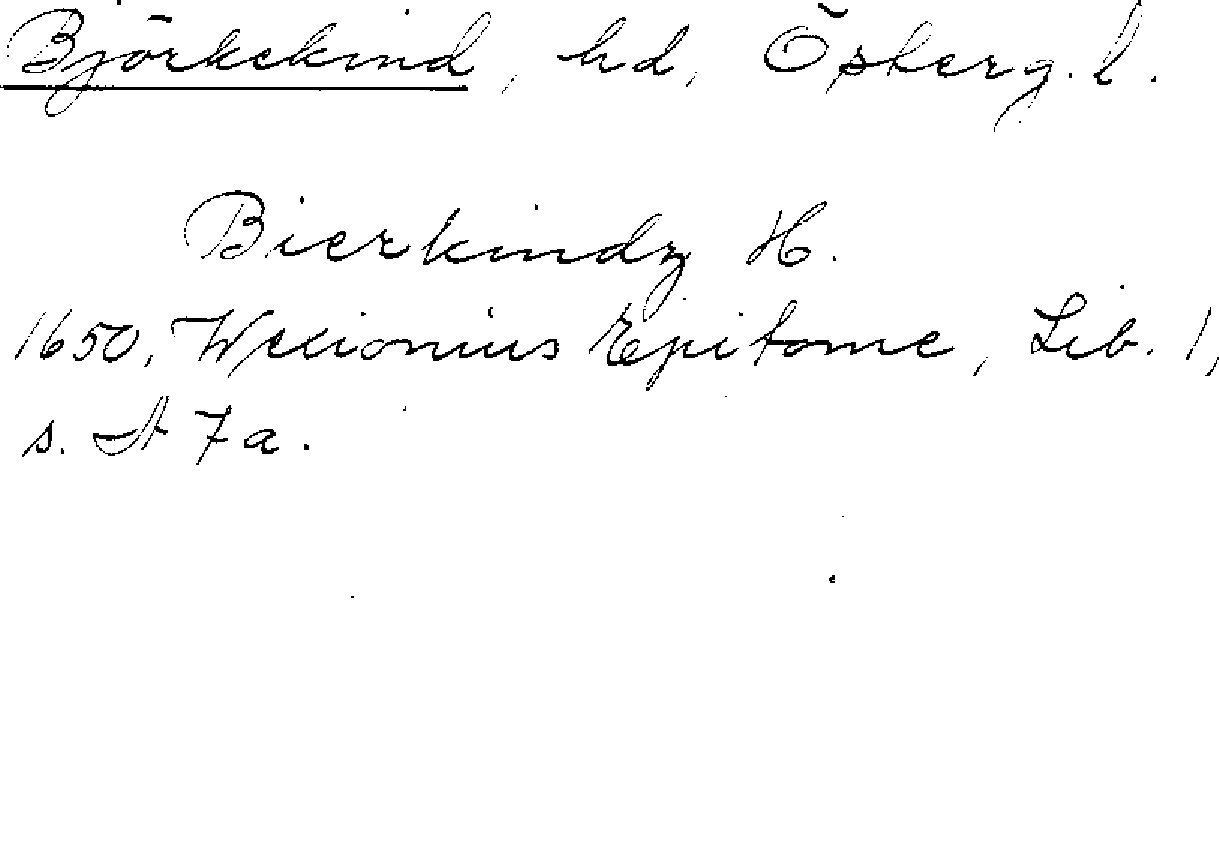 Björkekind, hd, Österg. l.
Bierkindz H.
1650, Wexionius Epitome, Lib. 1,
s. A 7 a.